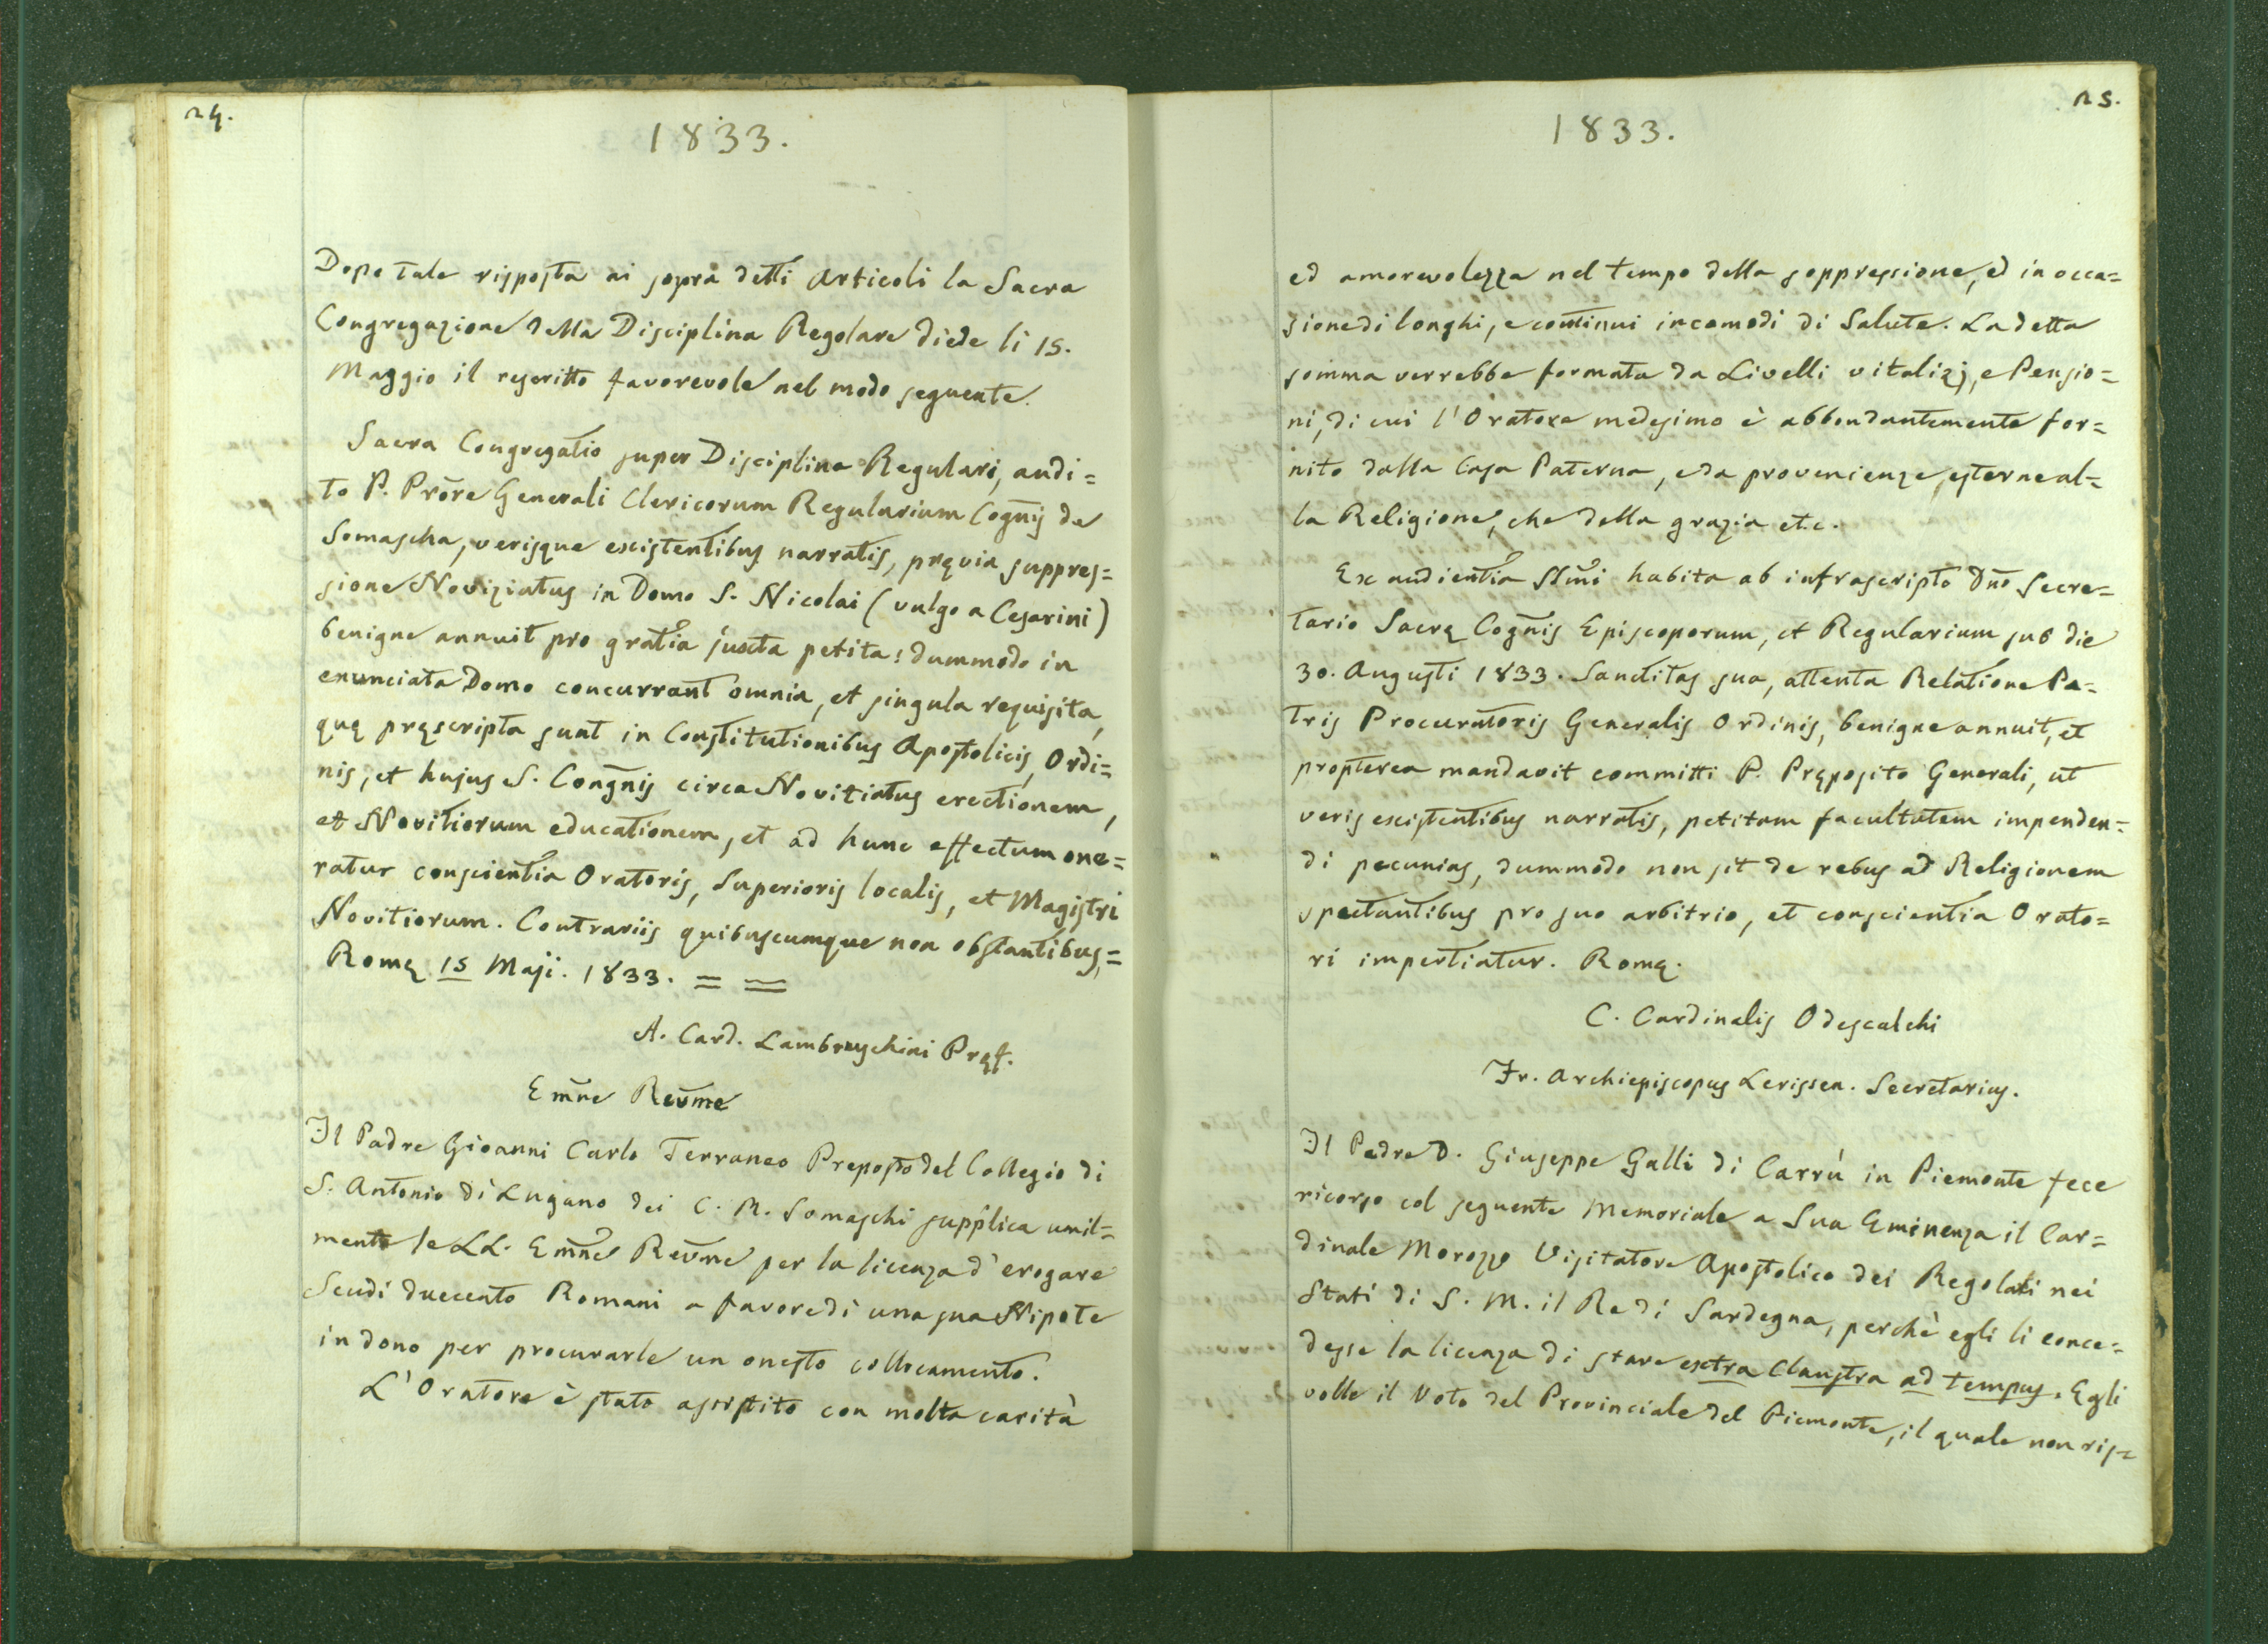 24.
1833.
Dopo tale risposta ai sopra detti Articoli la Sacra
Congregazione della Disciplina Regolare diede li 15.
Maggio il rescritto favorevole nel modo seguente.
Sacra Congregatio super Disciplina Regulari, audi=
to P. Prõre Generali Clericorum Regularium Cogñij de
Somascha, verisque existentibus narratis, pręvia suppres=
sione Noviziatus in Domo S. Nicolai (vulgo a Cesarini)
benigne annuit pro gratia juxta petita: dummodo in
enunciata Domo concurrant omnia, et singula requisita,
quę pręscripta sunt in Constitutionibus Apostolicis, Ordi=
nis, et hujus S. Congñis circa Novitiatus erectionem,
et Novitiorum educationem, et ad hunc effectum one=
ratur conscientia Oratoris, Superioris localis, et Magistri
Novitiorum. Contrariis quibuscumque non obstantibus,=
Romę 15 Maji. 1833. = =
A. Card. Lambruschini Pręf.
Em̃ne Reṽme
Il Padre Gioanni Carlo Terraneo Preposto del Collegio di
S. Antonio di Lugano dei C. R. Somaschi supplica umil=
mente le LL. Em̃ne Reṽme per la licenza d'erogare
Scudi duecento Romani a favore di una sua Nipote
in dono per procurarle un onesto collocamento.
L'Oratore è stato assistito con molta carità
25.
1833.
ed amorevolezza nel tempo della soppressione, ed in occa=
sione di longhi, e continui incomodi di Salute. La detta
somma verrebbe formata da Livelli vitalizj, e Pensio=
ni, di cui l'Oratore medesimo è abbondantemente for=
nito dalla Casa Paterna, e da provenienze esterne al=
la Religione, che della grazia etc.
Ex audientia SSm̃i habita ab infrascripto Dño Secre=
tario Sacrę Cogñis Episcoporum, et Regularium sub die
30. Augusti 1833. Sanctitas sua, attenta Relatione Pa=
tris Procuratoris Generalis Ordinis, benigne annuit, et
propterea mandavit committi P. Pręposito Generali, ut
veris existentibus narratis, petitam facultatem impenden=
di pecunias, dummodo non sit de rebus ad Religionem
spectantibus pro suo arbitrio, et conscientia Orato=
ri impertiatur. Romę.
C. Cardinalis Odescalchi
Fr. Archiepiscopus Lerissen. Secretarius.
Il Padre D. Giuseppe Galli di Carrù in Piemonte fece
ricorso col seguente Memoriale a Sua Eminenza il Car=
dinale Morozzo Visitatore Apostolico dei Regolari nei
Stati di S. M. il Re di Sardegna, perchè egli li conce=
desse la licenza di stare extra Claustra ad tempus. Egli
volle il Voto del Provinciale del Piemonte, il quale non ris=